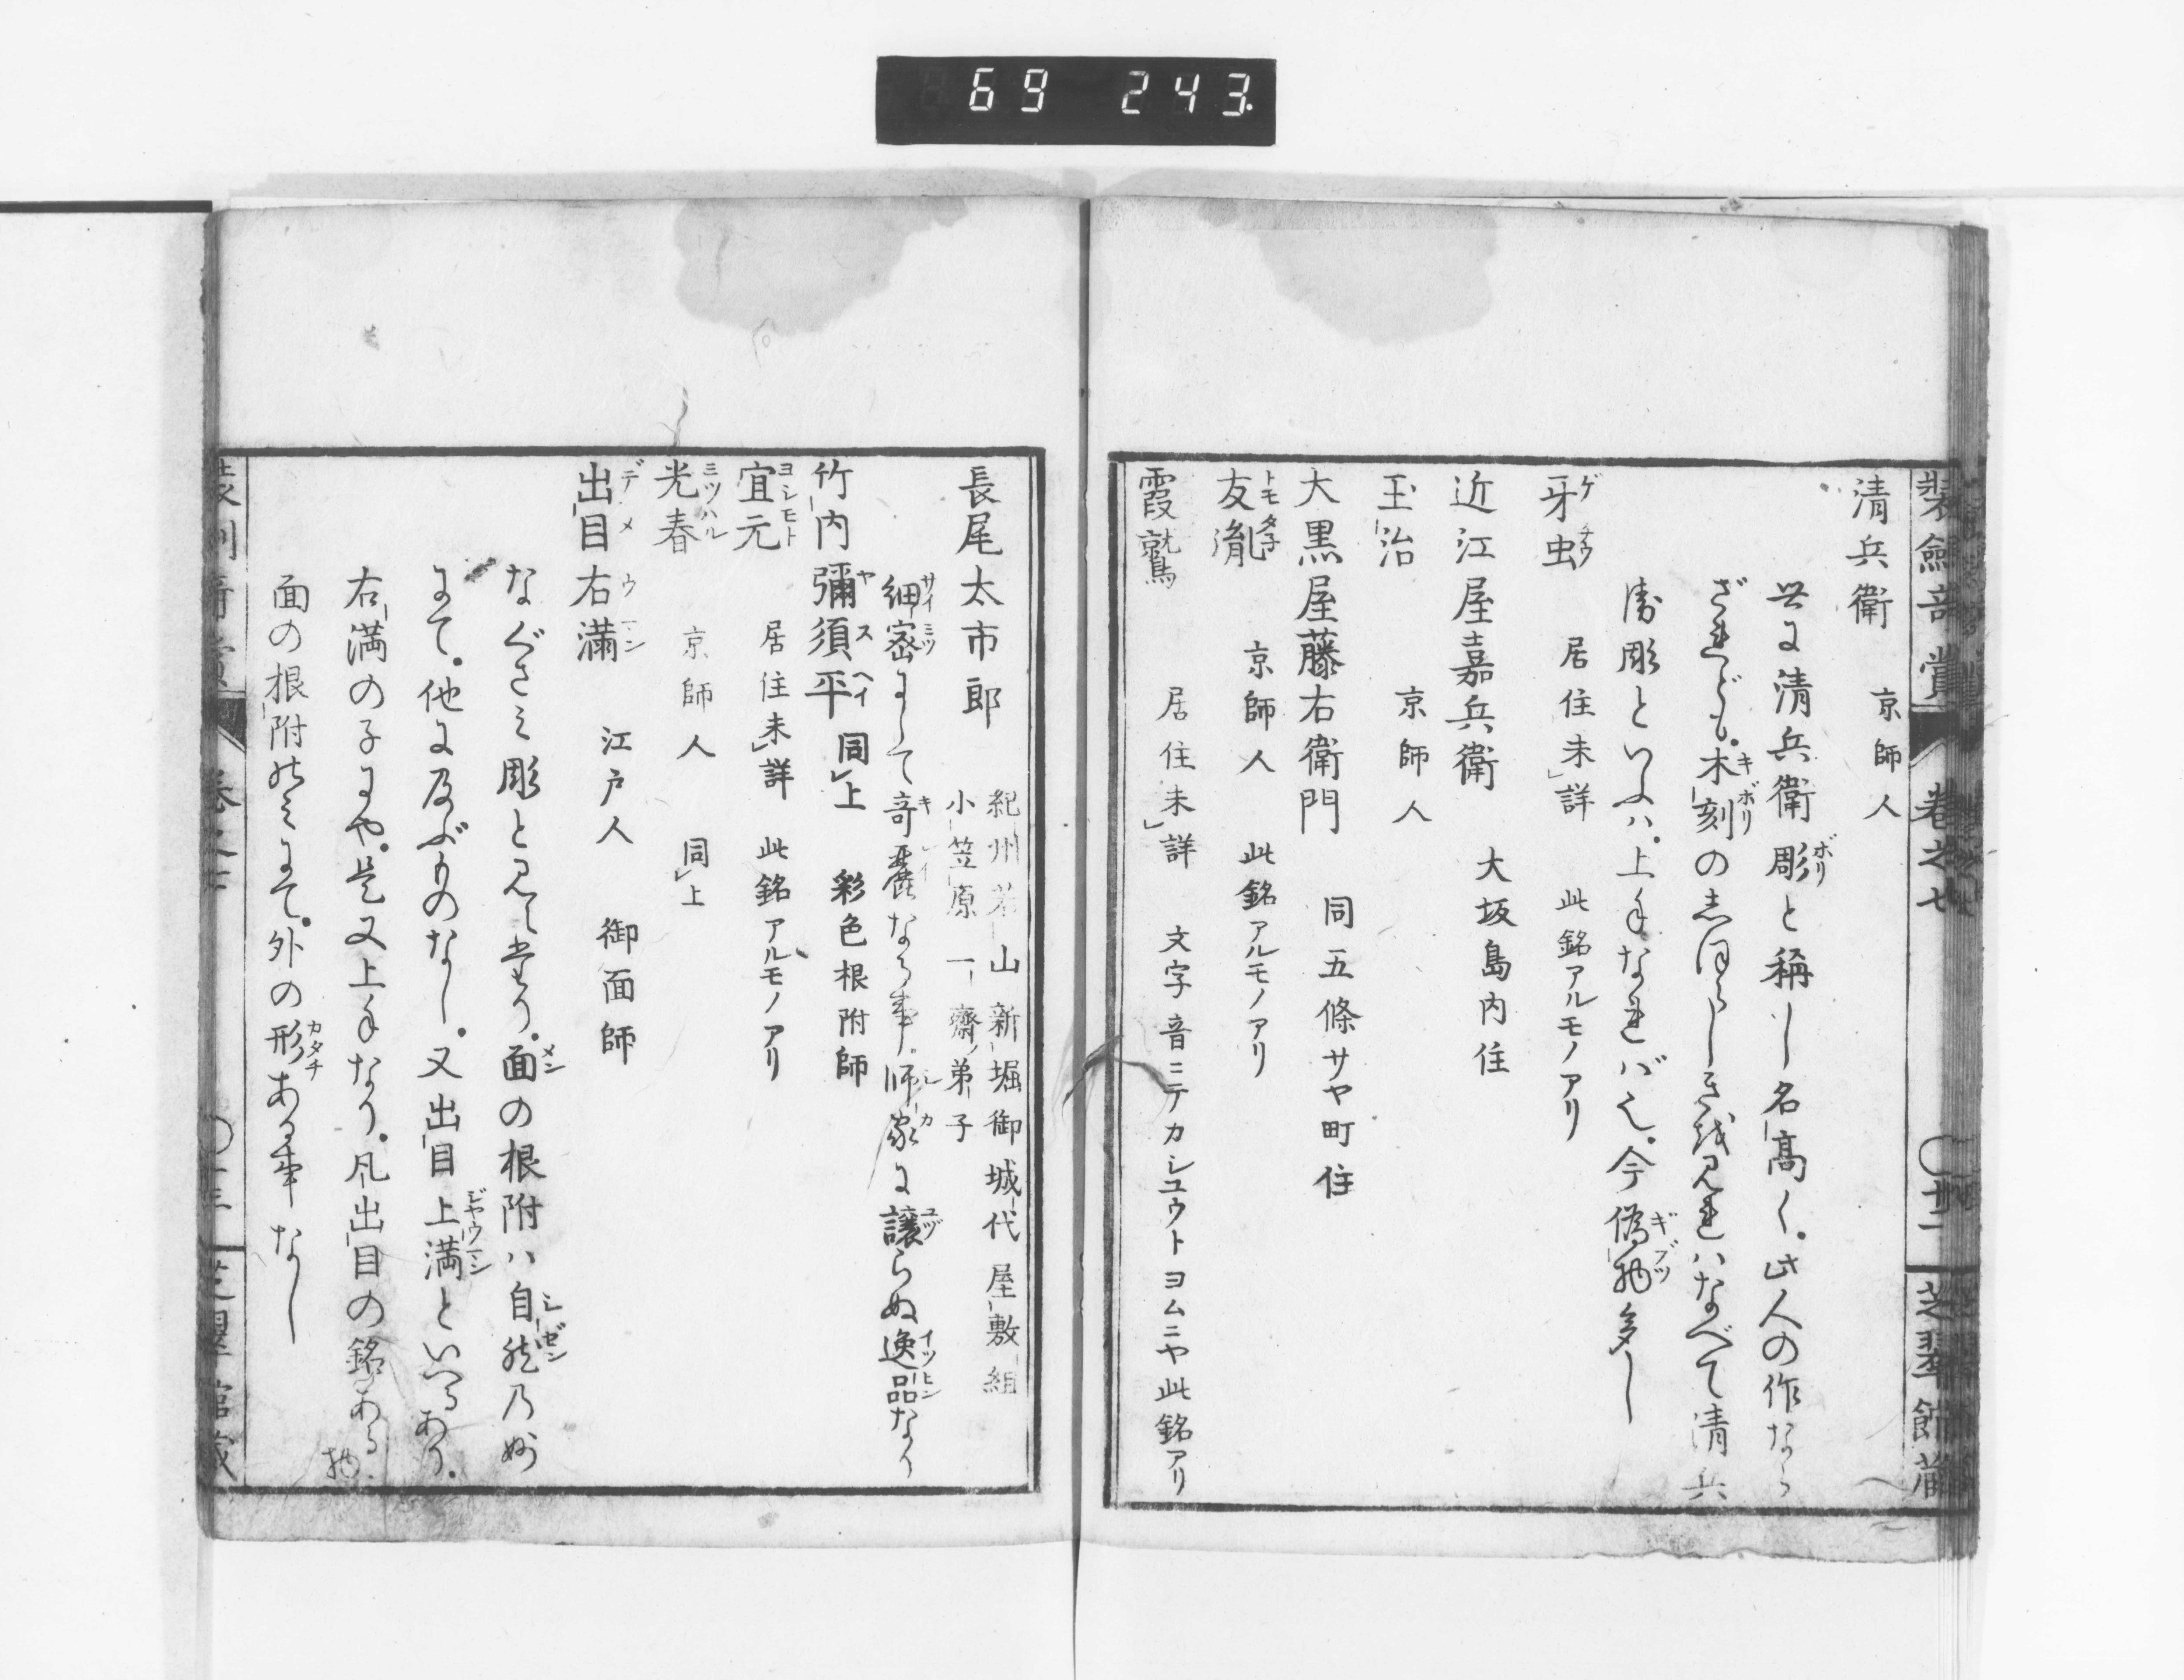 69 243.
装劔奇賞 巻之七 ○廿二 芝翠館蔵
清兵衛 京師人
世に清兵衛彫と称し名高く。此人の作なら
ざれども。木刻のしほらしきを見れハなべて清兵
衛彫といふハ。上手なれバ也。今偽物多し
牙虫 居住未詳 此銘アルモノアリ
近江屋嘉兵衛 大坂島内住
玉治 京師人
大黒屋藤右衛門 同五條サヤ町住
友胤 京師人 此銘アルモノアリ
霞鷲 居住未詳 文字音ニテカシユウトヨムニヤ此銘アリ
長尾太市郎 紀州若山新堀御城代屋敷組
小笠原一齋ノ弟子
細密にして奇麗なる事。師家に譲らぬ逸品なり
竹内彌須平 同上 彩色根附師
宜元 居住未詳 此銘アルモノアリ
光春 京師人 同上
出目右満 江戸人 御面師
なぐさミ彫と見へたり。面の根附ハ自然乃妙
にて。他に及ぶものなし。又出目上満といへるあり。
右満の子にや。是又上手なり。凡出目の銘ある物
面の根附のミにて。外の形ある事なし